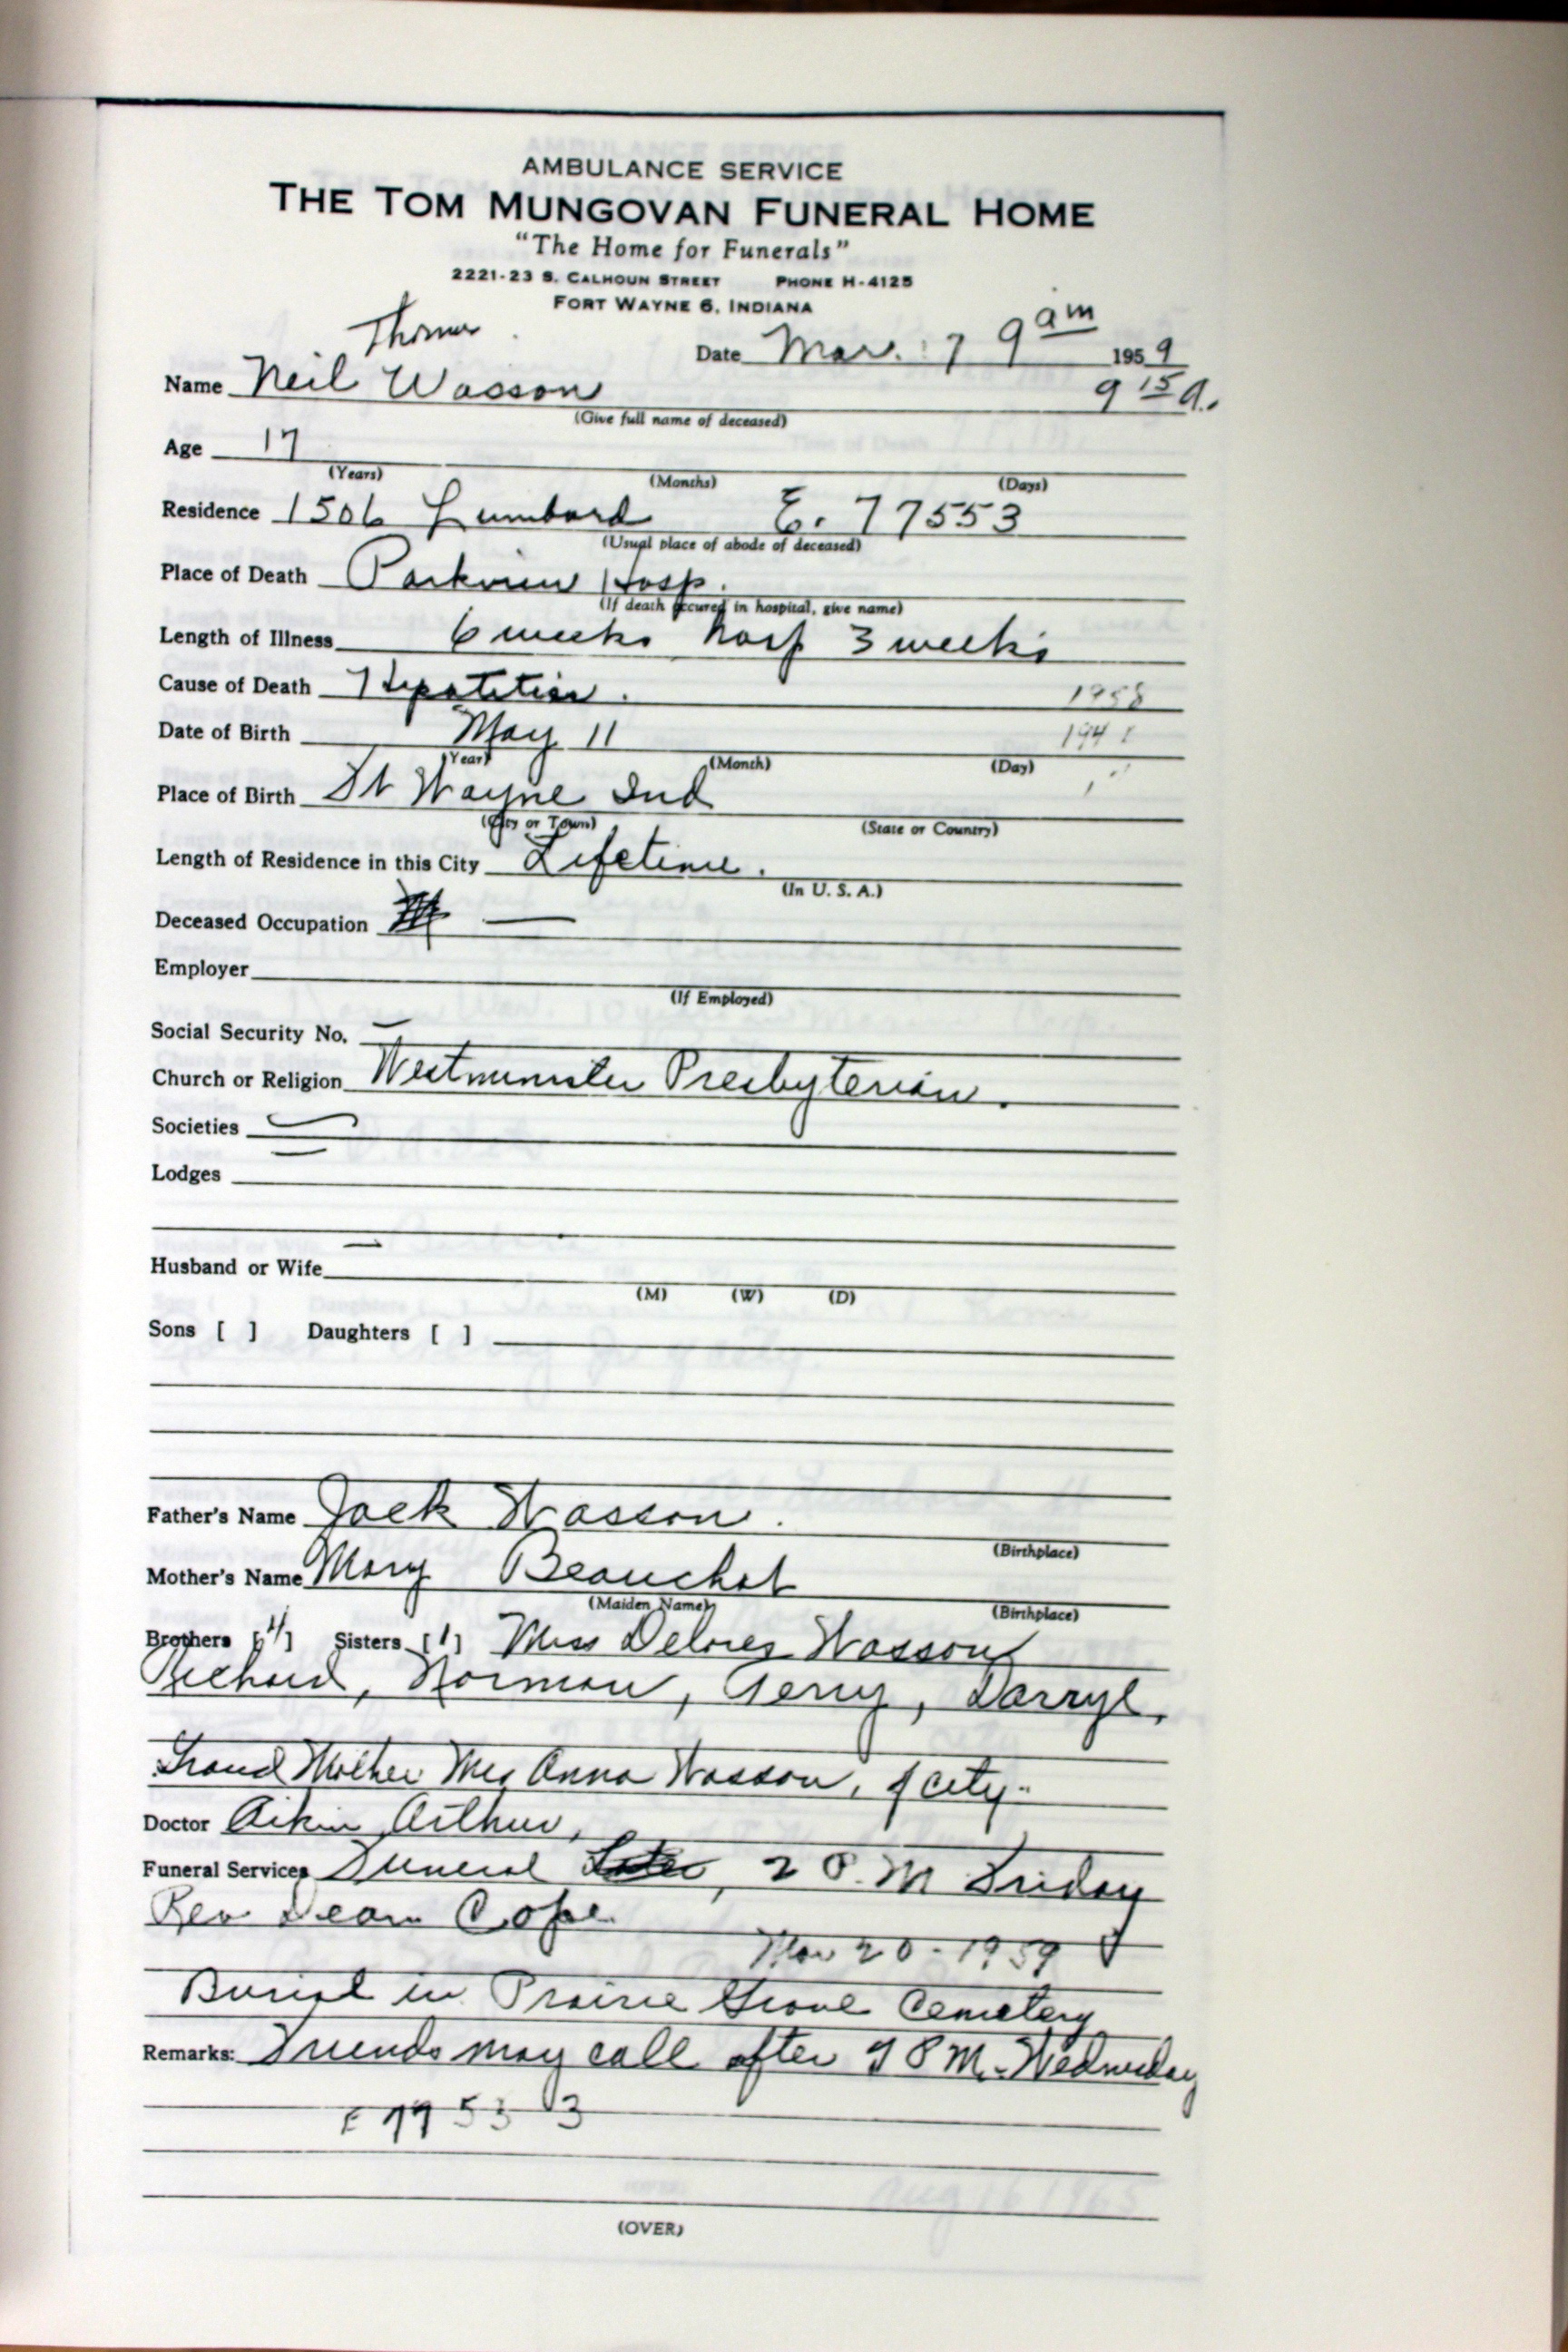 AMBULANCE SERVICE
THE TOM MUNGOVAN FUNERAL HOME
"The Home for Funerals"
2221-23 S. CALHOUN STREET PHONE H-4125
FORT WAYNE 6, INDIANA
Thomas
Date Mar. 17 9 am 1959
Name Neil Wasson 9 15 a.
(Give full name of deceased)
Age 17
(Years) (Months) (Days)
Residence 1506 Lumbard E. 77553
(Usual place of abode of deceased)
Place of Death Parkview Hosp.
(If death occured in hospital, give name)
Length of Illness 6 weeks hosp 3 weeks
Cause of Death Hepatitis. 1958
Date of Birth May 11 1941
(Year) (Month) (Day)
Place of Birth Ft Wayne Ind
(City or Town) (State or Country)
Length of Residence in this City Lifetime.
(In U. S. A.)
Deceased Occupation —
Employer
(If Employed)
Social Security No. —
Church or Religion Westminster Presbyterian.
Societies —
Lodges —
Husband or Wife —
(M) (W) (D)
Sons [ ] Daughters [ ]
Father's Name Jack Wasson.
(Birthplace)
Mother's Name Mary Beauchot
(Maiden Name) (Birthplace)
Brothers [4] Sisters [1] Miss Delores Wasson
Richard, Norman, Jerry, Darryl,
Grand Mother Mrs Anna Wasson, of city.
Doctor Aikin Arthur,
Funeral Services Funeral , 2 P.M Friday
Rev Dean Cope
Mar 20 - 1959
Burial in Prairie Grove Cemetery
Remarks: Friends may call after 7 P M. Wednesday
E 77553
(OVER)